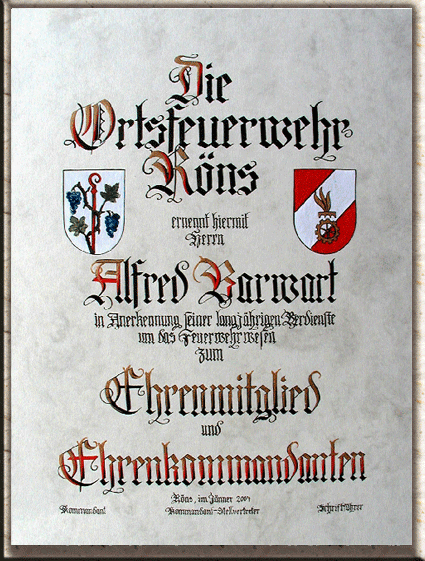 Die
Ortsfeuerwehr
Röns
ernennt hiermit
Herrn
Alfred Barwart
in Anerkennung seiner langjährigen Verdienste
um das Feuerwehrwesen
zum
Ehrenmitglied
und
Ehrenkommandanten
Röns, im Jänner 2004
Kommandant Kommandant-Stellvertreter Schriftführer